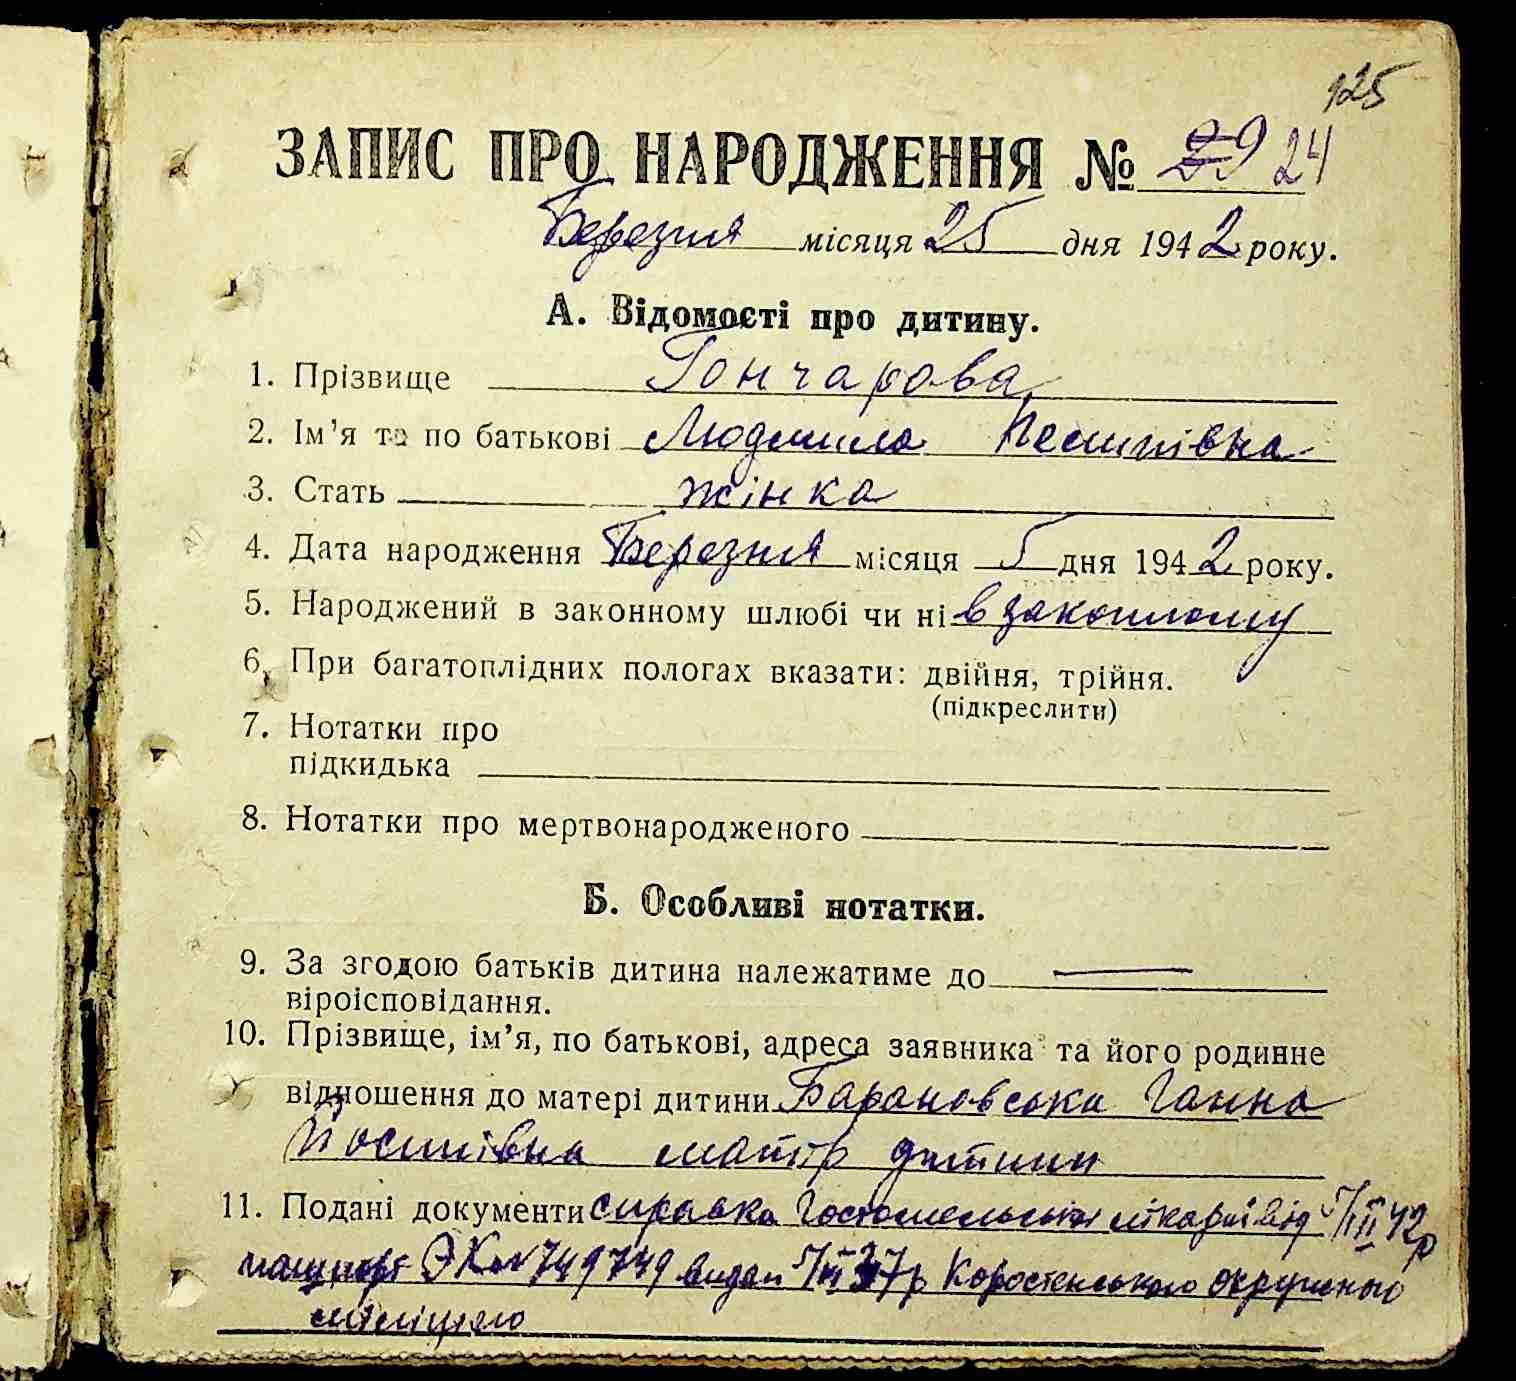 125
ЗАПИС ПРО НАРОДЖЕННЯ № 29 24
Березня місяця 25 дня 1942 року.
А. Відомості про дитину.
1. Прізвище Гончарова
2. Ім’я та по батькові Людмила
3. Стать жінка
4. Дата народження Березня місяця 5 дня 1942 року.
5. Народжений в законному шлюбі чи ні в законному
6. При багатоплідних пологах вказати: двійня, трійня.
(підкреслити)
7. Нотатки про
підкидька
8. Нотатки про мертвонародженого
Б. Особливі нотатки.
9. За згодою батьків дитина належатиме до —
віроісповідання.
10. Прізвище, ім’я, по батькові, адреса заявника та його родинне
відношення до матері дитини Барановська Ганна
Йосипівна матір дитини
11. Подані документи справка Гостомельської лікарні від 5/III 42р
пашпорт ЭК № 749749 видан 5/III 37р Коростенського окружного
міліцією